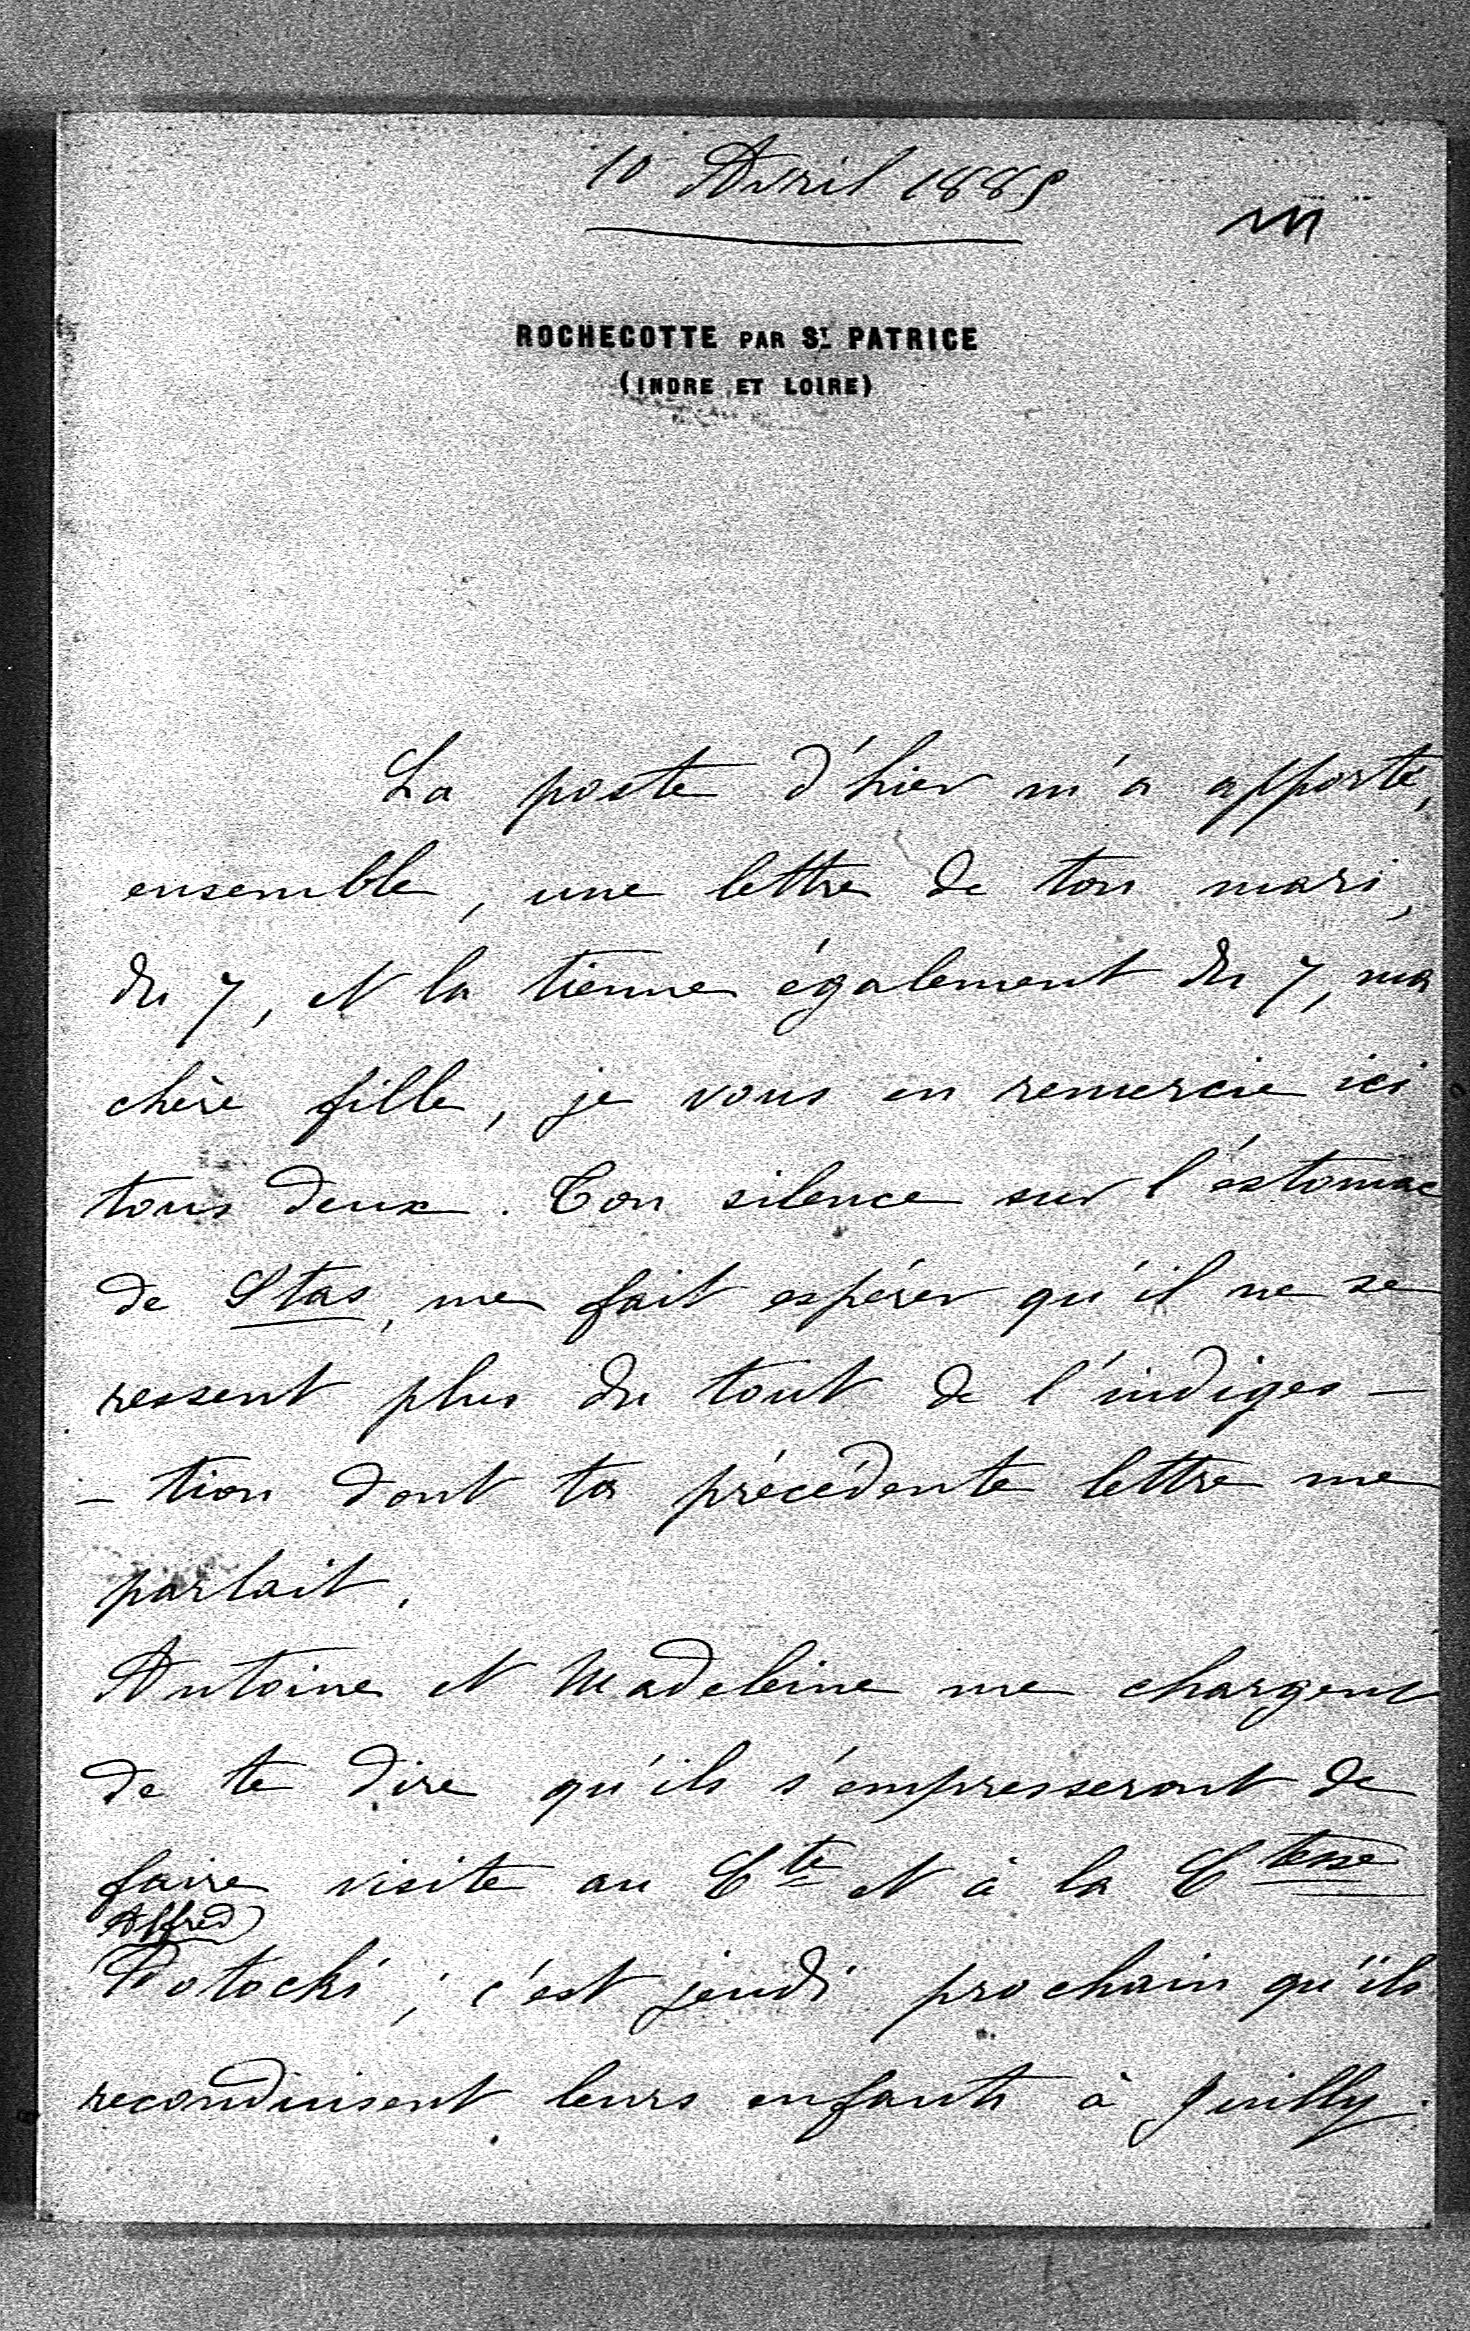 10 Avril 1885
ROCHECOTTE PAR ST PATRICE
(INDRE ET LOIRE)
La poste d'hier m'a apporté,
ensemble, une lettre de ton mari,
du 7, et la tienne également du 7, ma
chère fille, je vous en remercie ici
tous deux. Ton silence sur l'éstomac
de Stas, me fait espérer qu'il ne se
ressent plus du tout de l'indiges-
-tion dont ta précédente lettre me
parlait.
Antoine et Madeleine me chargent
de te dire qu'ils s'empresseront de
faire visite au Cte et à la Ctesse
Alfred
Potocki ; c'est jeudi prochain qu'ils
reconduisent leurs enfants à Juilly.